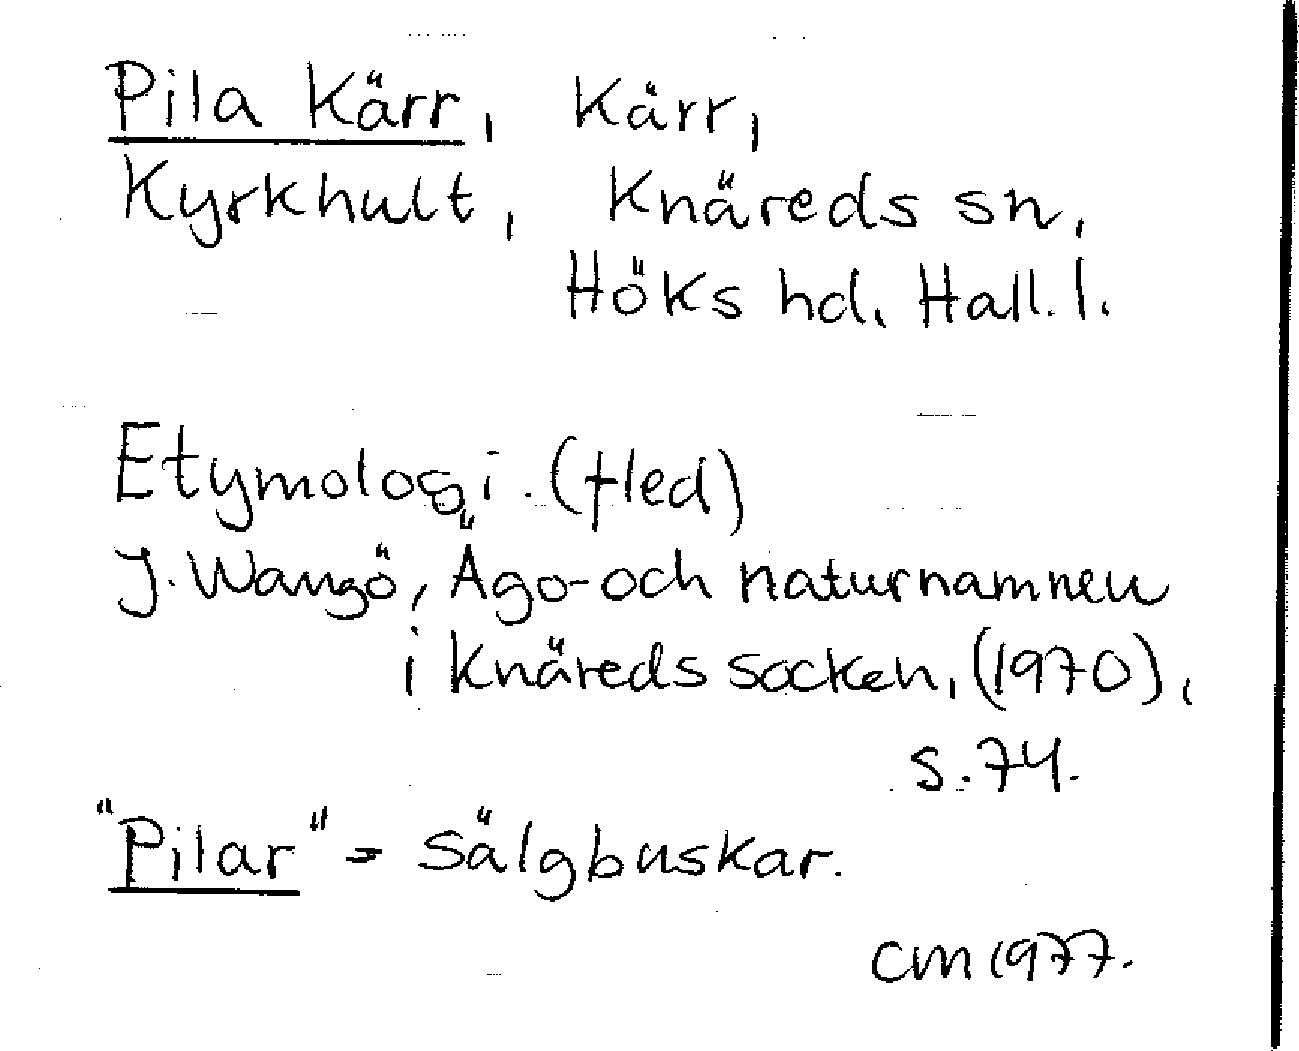 Pila Kärr, Kärr,
Kyrkhult, Knäreds sn,
Höks hd. Hall. l.
Etymologi. (fled)
J. Wangö, Ägo- och naturnamnen
i Knäreds socken, (1970),
s. 74.
"Pilar" = sälgbuskar.
CM 1977.